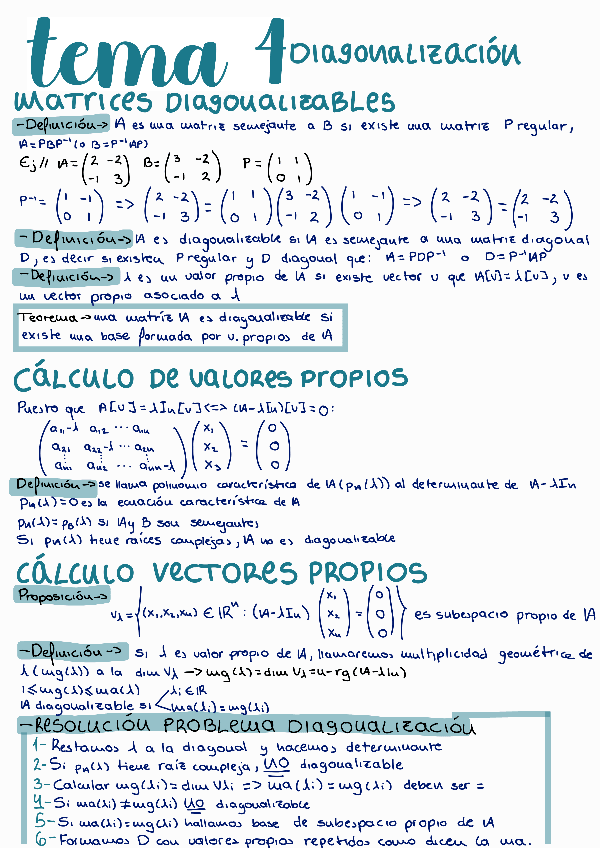 tema 4 Diagonalización
Matrices Diagonalizables
-Definición-> A es una matriz semejante a B si existe una matriz P regular,
A=PBP⁻¹ (o B=P⁻¹AP)
Ej// A=(2 -2; -1 3) B=(3 -2; -1 2) P=(1 1; 0 1)
P⁻¹=(1 -1; 0 1) => (2 -2; -1 3)=(1 1; 0 1)(3 -2; -1 2)(1 -1; 0 1) => (2 -2; -1 3)=(2 -2; -1 3)
-Definición-> A es diagonalizable si A es semejante a una matriz diagonal
D, es decir si existen P regular y D diagonal que: A=PDP⁻¹ o D=P⁻¹AP
-Definición-> λ es un valor propio de A si existe vector v que A[v]=λ[v], v es
un vector propio asociado a λ
Teorema-> una matriz A es diagonalizable si
existe una base formada por v. propios de A
Cálculo de valores propios
Puesto que A[v]=λIn[v]<=> (A-λIn)[v]=0:
(a₁₁-λ a₁₂ ... a₁n; a₂₁ a₂₂-λ ... a₂n; an₁ an₂ ... ann-λ)(x₁; x₂; x₃)=(0; 0; 0)
Definición-> se llama polinomio característico de A (pA(λ)) al determinante de A-λIn
pA(λ)=0 es la ecuación característica de A
pA(λ)=pB(λ) si A y B son semejantes
Si pA(λ) tiene raíces complejas, A no es diagonalizable
Cálculo vectores propios
Proposición->
Vλ={(x₁,x₂,xn) ∈ ℝⁿ: (A-λIn)(x₁; x₂; xn)=(0; 0; 0)} es subespacio propio de A
-Definición-> Si λ es valor propio de A, llamaremos multiplicidad geométrica de
λ (mg(λ)) a la dim Vλ -> mg(λ)=dim Vλ=n-rg(A-λIn)
1≤mg(λ)≤ma(λ)
A diagonalizable si < λi∈ℝ
ma(λi)=mg(λi)
-Resolución problema diagonalización
1- Restamos λ a la diagonal y hacemos determinante
2- Si pA(λ) tiene raíz compleja, NO diagonalizable
3- Calcular mg(λi)=dim Vλi => ma(λi)=mg(λi) deben ser =
4- Si ma(λi)≠mg(λi) NO diagonalizable
5- Si ma(λi)=mg(λi) hallamos base de subespacio propio de A
6- Formamos D con valores propios repetidos como dicen la ma.